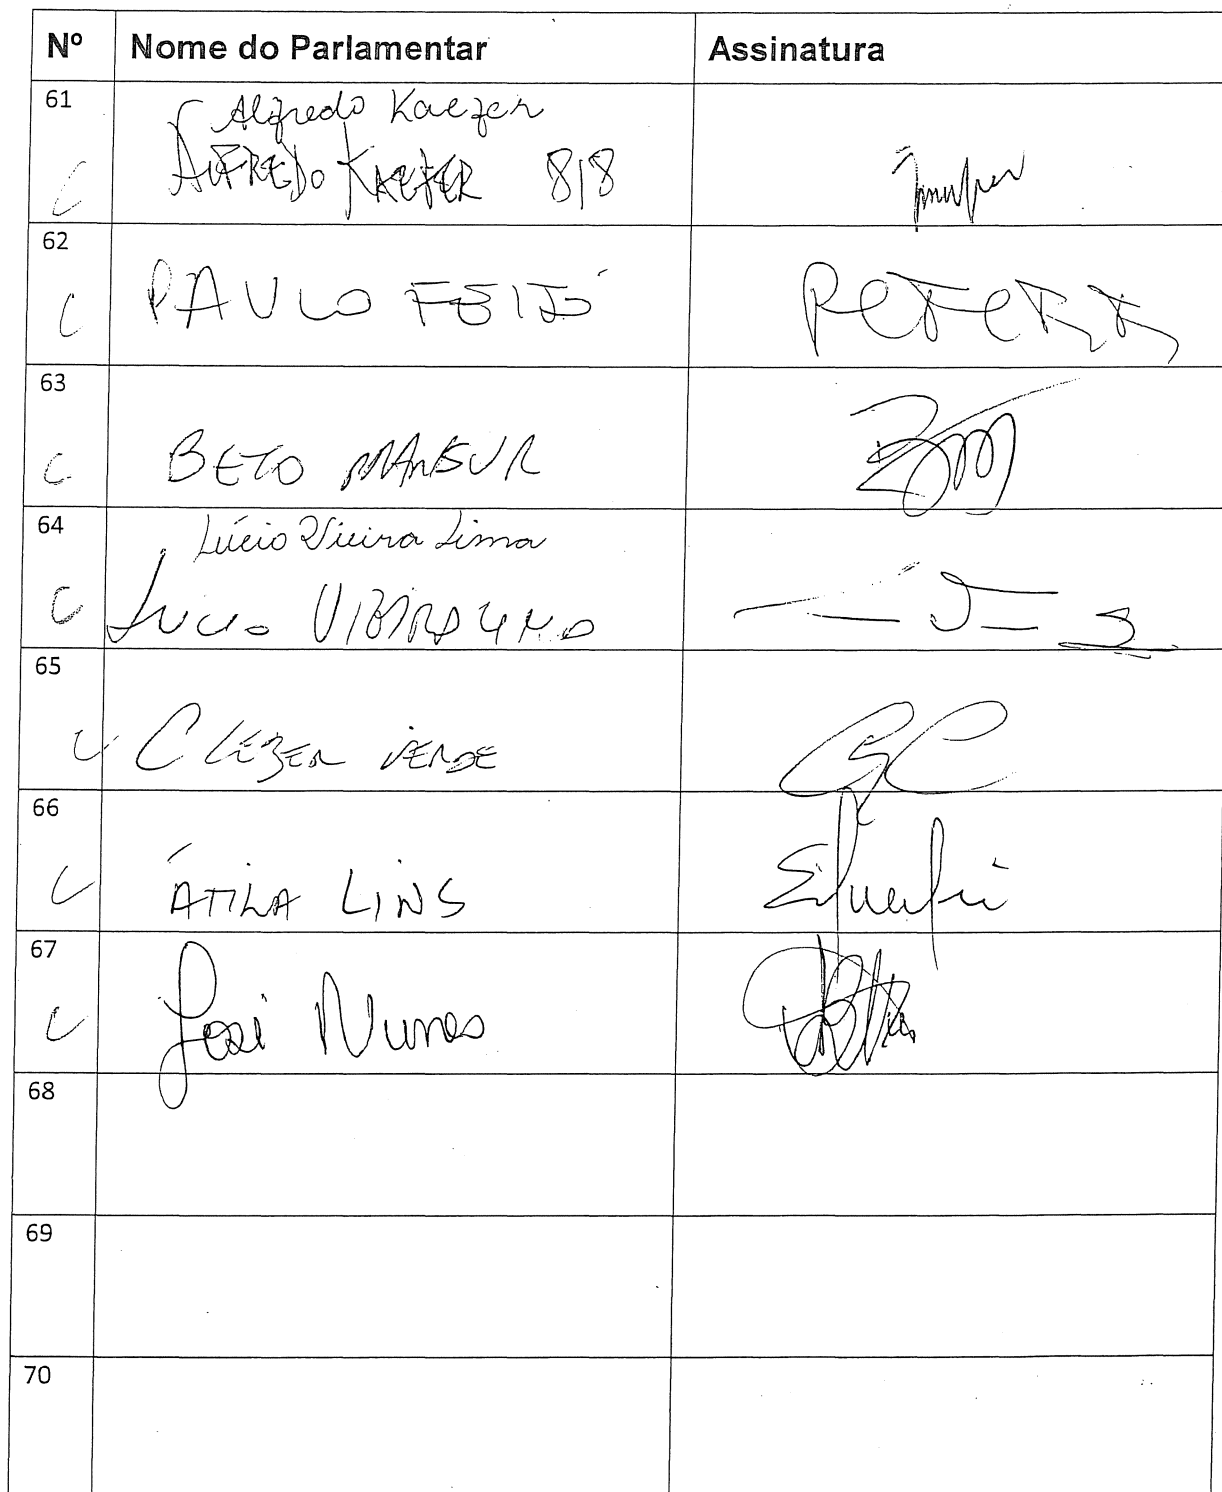 Nº Nome do Parlamentar Assinatura
61
Alfredo Kaefer
ALFREDO KAEFER 818
62
C PAULO FEIJÓ
63
C BETO MANSUR
64
Lúcio Vieira Lima
C Lucio VIEIRA LIMA
65
C CLEBER VERDE
66
C ÁTILA LINS
67
C José Nunes
68
69
70